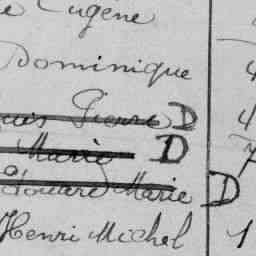 e Eugène
Dominique 4
uis Pierre D 4
Marie D 7
Edouard Marie D
Henri Michel 1